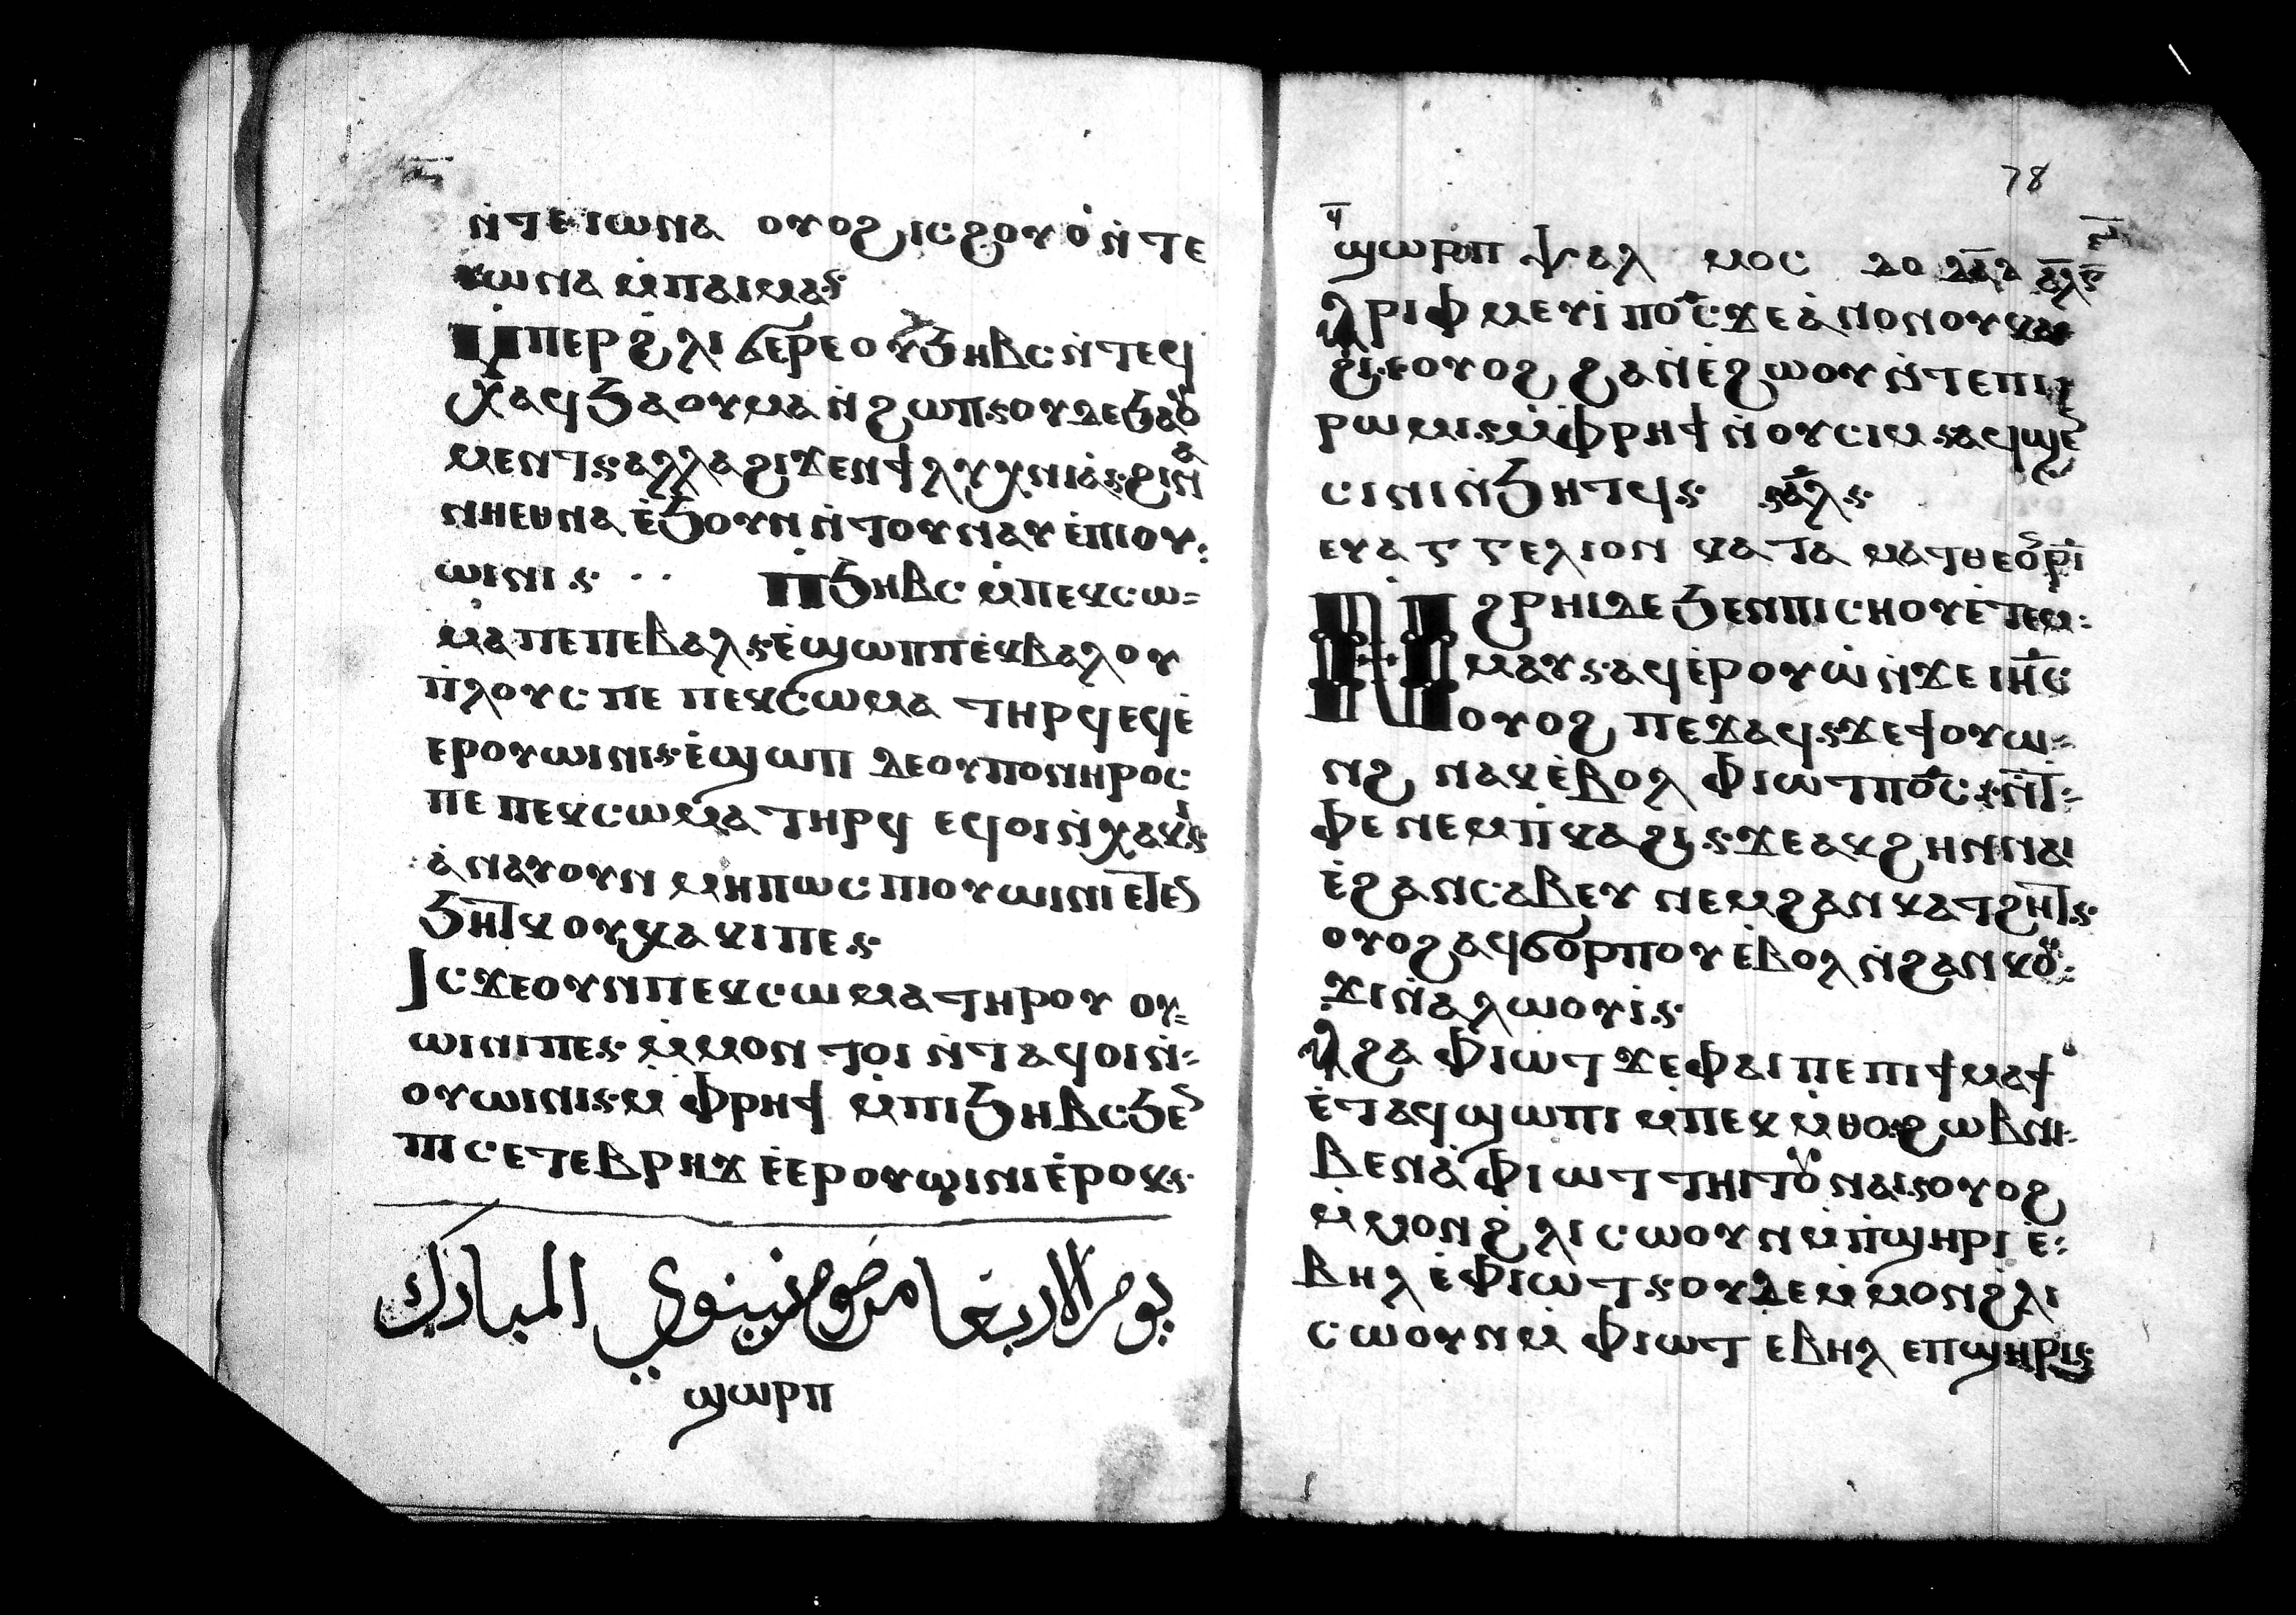 ⲛ̇ⲧⲉⲓⲱⲛⲁ ⲟⲩⲟϩ ⲓⲥ ϩⲟⲩⲟ̇ ⲛ̇ⲧⲉ
ⲓⲱⲛⲁ ⲙ̇ⲡⲁⲓⲙⲁ⳾
ⲙ̇ⲡⲉⲣ ϩ̇ⲗⲓ ϭⲉⲣⲉ ⲟⲩϧⲏⲃⲥ ⲛ̇ⲧⲉϥ
ⲭⲁϥ ϧⲁ ⲟⲩⲙⲁ ⲛ̇ϩⲱⲡ⳾ ⲟⲩⲇⲉ ϧⲁⲟⲩ
ⲙⲉⲛⲧ⳾ ⲁⲗⲗⲁ ϩⲓϫⲉⲛ ϯⲗⲩⲭⲛⲓⲁ̇⳾ ϩⲓⲛⲁ
ⲛⲏⲉⲑⲛⲁ ⲉ̇ϧⲟⲩⲛ ⲛ̇ⲧⲟⲩⲛⲁⲩ ⲉ̇ⲡⲓⲟⲩ⸗
ⲱⲓⲛⲓ⳾ ⲡ̇ϧⲏⲃⲥ ⲙ̇ⲡⲉⲕⲥⲱ⸗
ⲙⲁ ⲡⲉ ⲡⲉⲃⲁⲗ⳾ ⲉ̇ϣⲱⲡ ⲡⲉⲕⲃⲁⲗ ⲟⲩ
ⲡ̇ⲗⲟⲩⲥ ⲡⲉ ⲡⲉⲕⲥⲱⲙⲁ ⲧⲏⲣϥ ⲉϥⲉ̇
ⲉⲣⲟⲩⲱⲓⲛⲓ⳾ ⲉ̇ϣⲱⲡ ⲇⲉ ⲟⲩⲡⲟⲛⲏⲣⲟⲥ
ⲡⲉ ⲡⲉⲕⲥⲱⲙⲁ ⲧⲏⲣϥ ⲉϥⲟⲓ ⲛ̇ⲭⲁⲕⲓ⳾
ⲁ̇ⲛⲁⲩ ⲟⲩⲛ ⲙⲏⲡⲱⲥ ⲡⲓⲟⲩⲱⲓⲛⲓ ⲉⲧⲉ
ⲛ̇ϧⲏⲧⲕ ⲟⲩⲭⲁⲕⲓ ⲡⲉ⳾
Ⲓⲥϫⲉ ⲟⲩⲛ ⲡⲉⲕⲥⲱⲙⲁ ⲧⲏⲣⲟⲩ ⲟⲩ⸗
ⲱⲓⲛⲓ ⲡⲉ⳾ ⲙ̇ⲙⲟⲛ ⲧⲟⲓ ⲛ̇ⲧⲁϥ ⲟⲓ ⲛ̇⸗
ⲟⲩⲱⲓⲛⲓ⳾ ⲙ̇ ⲫⲣⲏϯ ⲙ̇ⲡⲓϧⲏⲃⲥ ϧⲉⲛ
ⲡⲓⲥⲉⲧⲉⲃⲣⲏϫ ⲉ̇ⲉⲣⲟⲩⲱⲓⲛⲓ ⲉ̇ⲣⲟⲕ⳾
يوم الاربعا من صوم نينوي المبارك
ϣⲱⲣⲡ
78
ϣⲱⲣⲡ ⲯⲁⲗⲙⲟⲥ ⲁⲗ⳾
ⲁⲣⲓⲫⲙⲉⲩⲓ̇ ⲡⲟ̅ⲥ̅ ϫⲉ ⲁ̇ⲛⲟⲛ ⲟⲩⲕⲁ
ϩⲓ⳾ ⲟⲩⲟϩ ϩⲁⲛⲉ̇ϩⲱⲟⲩ ⲛ̇ⲧⲉ ⲡⲓ
ⲣⲱⲙⲓ⳾ ⲙ̇ⲫⲣⲏϯ ⲛ̇ⲟⲩⲥⲓⲙ⳾ ⲁϥϣⲉ
ⲥⲓⲛⲓ ⲛ̇ϧⲏⲧϥ⳾ ⲁⲗ⳾
ⲉⲩⲁⲅⲅⲉⲗⲓⲟⲛ ⲕⲁⲧⲁ ⲙⲁⲧⲑⲉⲟⲛ
Ⲛ̇ϩⲣⲏⲓ ⲇⲉ ϧⲉⲛ ⲡⲓⲥⲏⲟⲩ ⲉ̇ⲧⲉⲙ⸗
ⲙⲁⲩ⳾ ⲁϥⲉ̇ⲣⲟⲩⲱ̇ ⲛ̇ϫⲉ ⲓⲏ̅ⲥ̅
ⲟⲩⲟϩ ⲡⲉϫⲁϥ⳾ ϫⲉ ϯⲟⲩⲱ⸗
ⲛϩ ⲛⲁⲕ ⲉ̇ⲃⲟⲗ ⲫⲓⲱⲧ ⲡⲟ̅ⲥ̅ ⲛ̇ⲧ⸗
ⲫⲉ ⲛⲉⲙ ⲡ̇ⲕⲁϩⲓ⳾ ϫⲉ ⲁⲕϩⲏⲡ ⲛⲁⲓ
ⲉ̇ϩⲁⲛⲥⲁⲃⲉⲩ ⲛⲉⲙ ϩⲁⲛⲕⲁⲧϩⲏⲧ⳾
ⲟⲩⲟϩ ⲁϥϭⲟⲣⲡⲟⲩ ⲉ̇ⲃⲟⲗ ⲛ̇ϩⲁⲛⲕⲟⲩ⸗
ϫⲓ ⲛ̇ⲁⲗⲱⲟⲩⲓ̇⳾
ⲁϩⲁ ⲫⲓⲱⲧ ϫⲉ ⲫⲁⲓ ⲡⲉ ⲡⲓϯⲙⲁϯ
ⲉ̇ⲧⲁϥϣⲱⲡⲓ ⲙ̇ⲡⲉⲕⲙ̇ⲑⲟ⳾ ϩⲱⲃ ⲛⲓ⸗
ⲃⲉⲛ ⲁ̇ ⲫⲓⲱⲧ ⲧⲏⲓⲧⲟⲩ ⲛⲁⲓ⳾ ⲟⲩⲟϩ
ⲙ̇ⲙⲟⲛ ϩ̇ⲗⲓ ⲥⲱⲟⲩⲛ ⲙ̇ⲡ̇ϣⲏⲣⲓ ⲉ̇⸗
ⲃⲏⲗ ⲉ̇ⲫⲓⲱⲧ⳾ ⲟⲩⲇⲉ ⲙ̇ⲙⲟⲛ ϩ̇ⲗⲓ
ⲥⲱⲟⲩⲛ ⲙ̇ ⲫⲓⲱⲧ ⲉⲃⲏⲗ ⲉⲡϣⲏⲣⲓ⳾